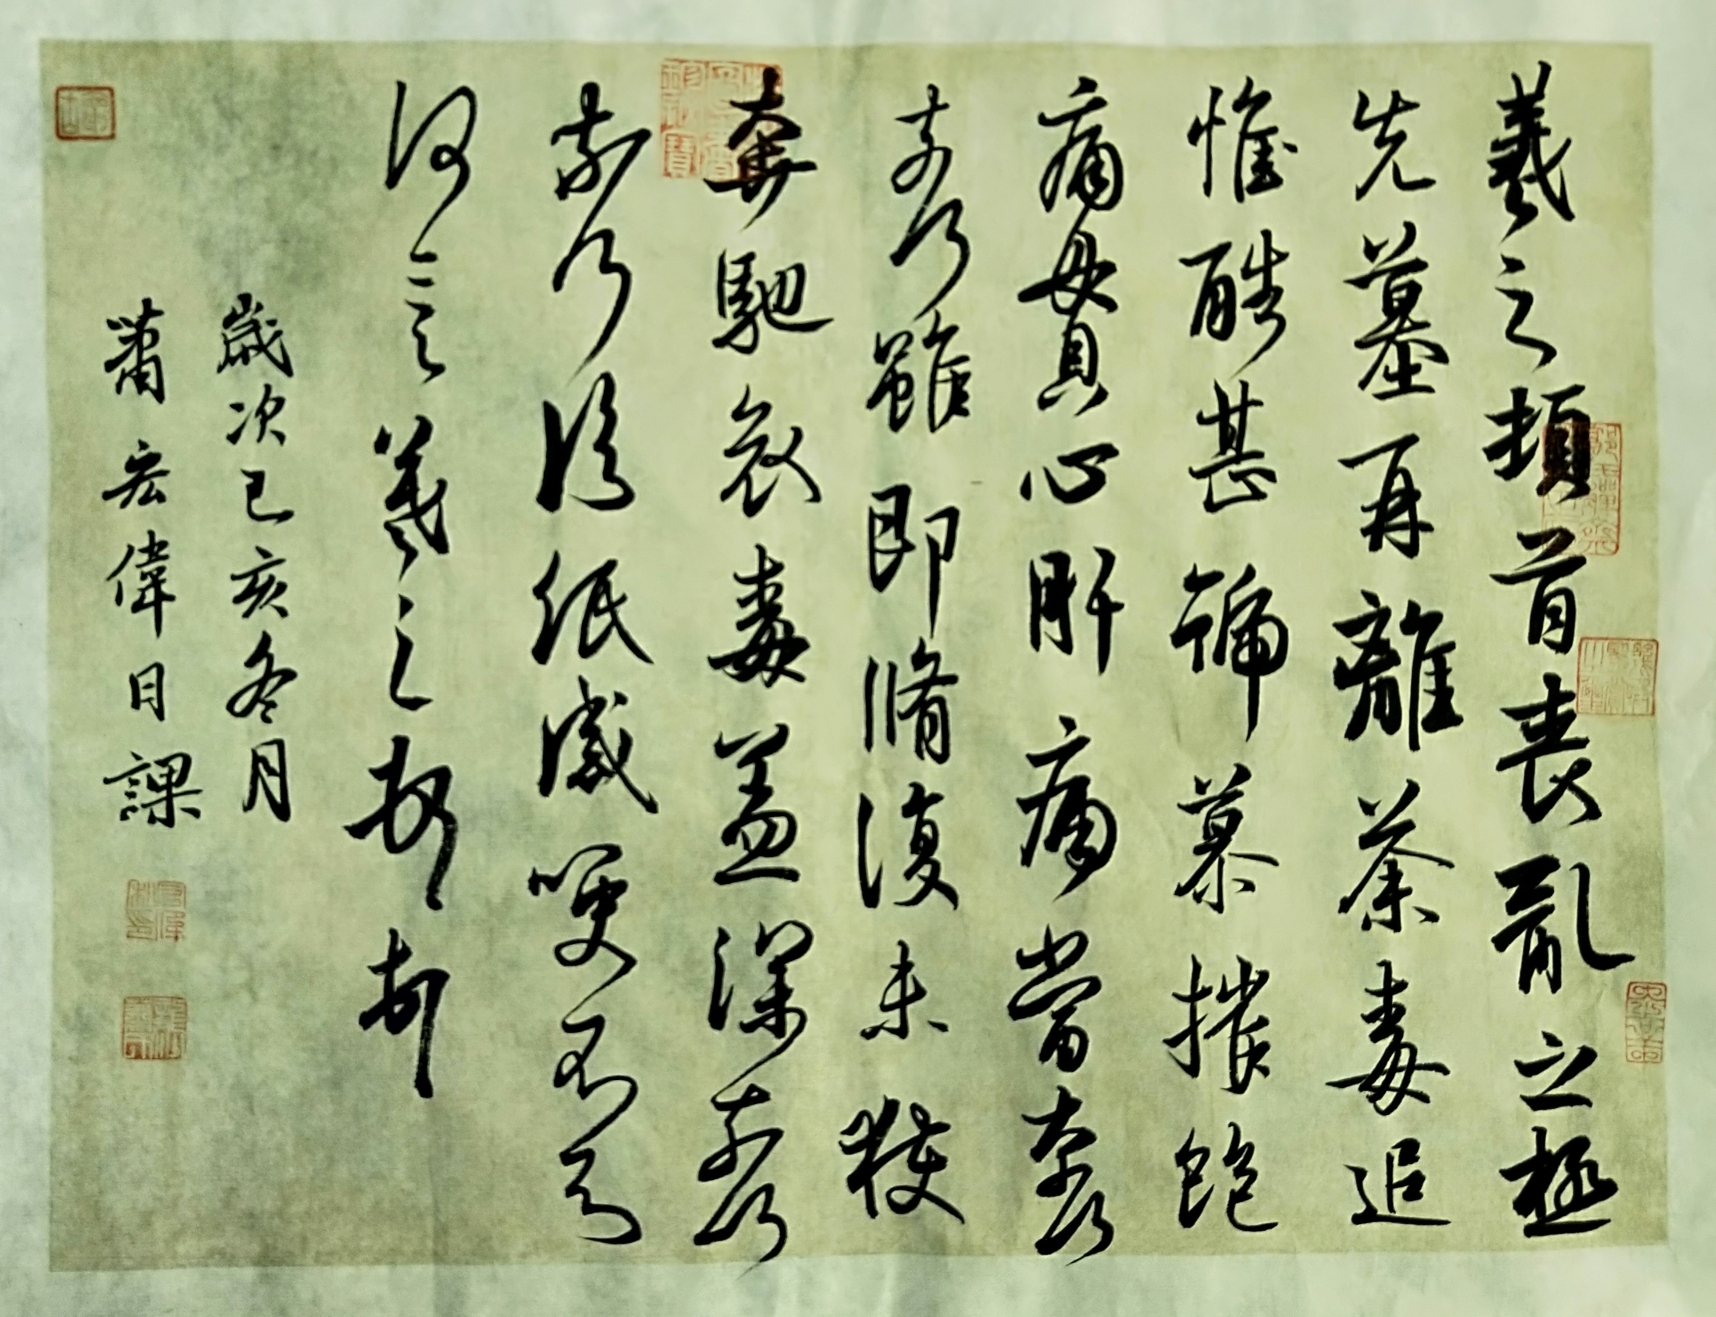 羲之頓首喪亂之極
先墓再離荼毒追
惟酷甚號慕摧絕
痛貫心肝痛當奈何
奈何雖即脩復未獲
奔馳哀毒益深奈何
奈何臨紙感哽不知
何言羲之頓首
歲次己亥冬月
蕭宏偉日課